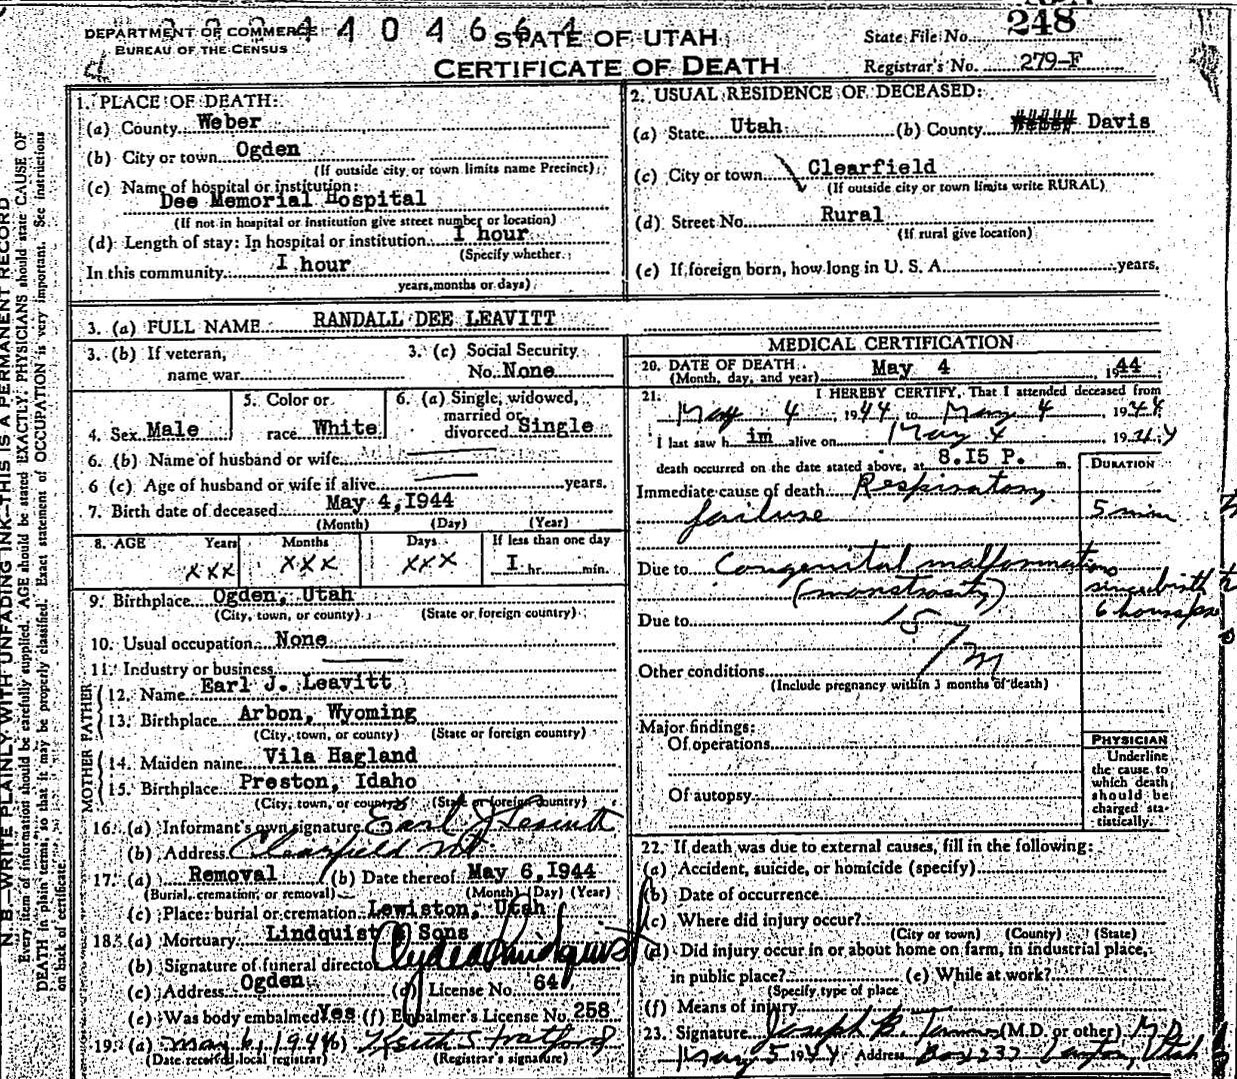 DEPARTMENT OF COMMERCE
BUREAU OF THE CENSUS
4 0 4 6 6 4
STATE OF UTAH
CERTIFICATE OF DEATH
State File No. 248
Registrar's No. 279-F
N. B.—WRITE PLAINLY WITH UNFADING INK—THIS IS A PERMANENT RECORD
Every item of information should be carefully supplied. AGE should be stated EXACTLY. PHYSICIANS should state CAUSE OF
DEATH in plain terms, so that it may be properly classified. Exact statement of OCCUPATION is very important. See instructions
on back of certificate.
1. PLACE OF DEATH:
(a) County Weber
(b) City or town Ogden
(If outside city or town limits name Precinct)
(c) Name of hospital or institution:
Dee Memorial Hospital
(If not in hospital or institution give street number or location)
(d) Length of stay: In hospital or institution I hour
(Specify whether
In this community I hour
years, months or days)
2. USUAL RESIDENCE OF DECEASED:
(a) State Utah (b) County ##### Davis
(c) City or town Clearfield
(If outside city or town limits write RURAL)
(d) Street No. Rural
(If rural give location)
(e) If foreign born, how long in U. S. A. years.
3. (a) FULL NAME RANDALL DEE LEAVITT
3. (b) If veteran,
name war
3. (c) Social Security
No. None
4. Sex Male
5. Color or
race White
6. (a) Single, widowed,
married or
divorced Single
6. (b) Name of husband or wife
6 (c) Age of husband or wife if alive years.
7. Birth date of deceased May 4, 1944
(Month) (Day) (Year)
8. AGE Years Months Days If less than one day
xxx xxx xxx I hr. min.
9. Birthplace Ogden, Utah
(City, town, or county) (State or foreign country)
10. Usual occupation None
11. Industry or business
FATHER
12. Name Earl J. Leavitt
13. Birthplace Arbon, Wyoming
(City, town, or county) (State or foreign country)
MOTHER
14. Maiden name Vila Hagland
15. Birthplace Preston, Idaho
(City, town, or county) (State or foreign country)
16. (a) Informant's own signature Earl J Leavitt
(b) Address Clearfield Ut
17. (a) Removal (b) Date thereof May 6, 1944
(Burial, cremation, or removal) (Month) (Day) (Year)
(c) Place: burial or cremation Lewiston, Utah
18. (a) Mortuary Lindquist & Sons
(b) Signature of funeral director Clyde Lindquist
(c) Address Ogden (d) License No. 64
(e) Was body embalmed Yes (f) Embalmer's License No. 258
19. (a) May 6, 1944 (b) Keith Stratford
(Date received local registrar) (Registrar's signature)
MEDICAL CERTIFICATION
20. DATE OF DEATH May 4 1944
(Month, day, and year)
21. I HEREBY CERTIFY, That I attended deceased from
May 4 1944 to May 4 1944
I last saw h im alive on May 4 1944
death occurred on the date stated above, at 8.15 P. m.
DURATION
Immediate cause of death Respiratory
failure 5 min
Due to Congenital malformation since birth
(monstrosity) 6 hours
Due to
157m
Other conditions
(Include pregnancy within 3 months of death)
Major findings:
Of operations
Of autopsy
PHYSICIAN
Underline
the cause to
which death
should be
charged sta-
tistically.
22. If death was due to external causes, fill in the following:
(a) Accident, suicide, or homicide (specify)
(b) Date of occurrence
(c) Where did injury occur?
(City or town) (County) (State)
(d) Did injury occur in or about home on farm, in industrial place,
in public place? (e) While at work?
(Specify type of place
(f) Means of injury
23. Signature Joseph (M.D. or other) M.D.
May 5 1944 Address Box 237 Layton, Utah